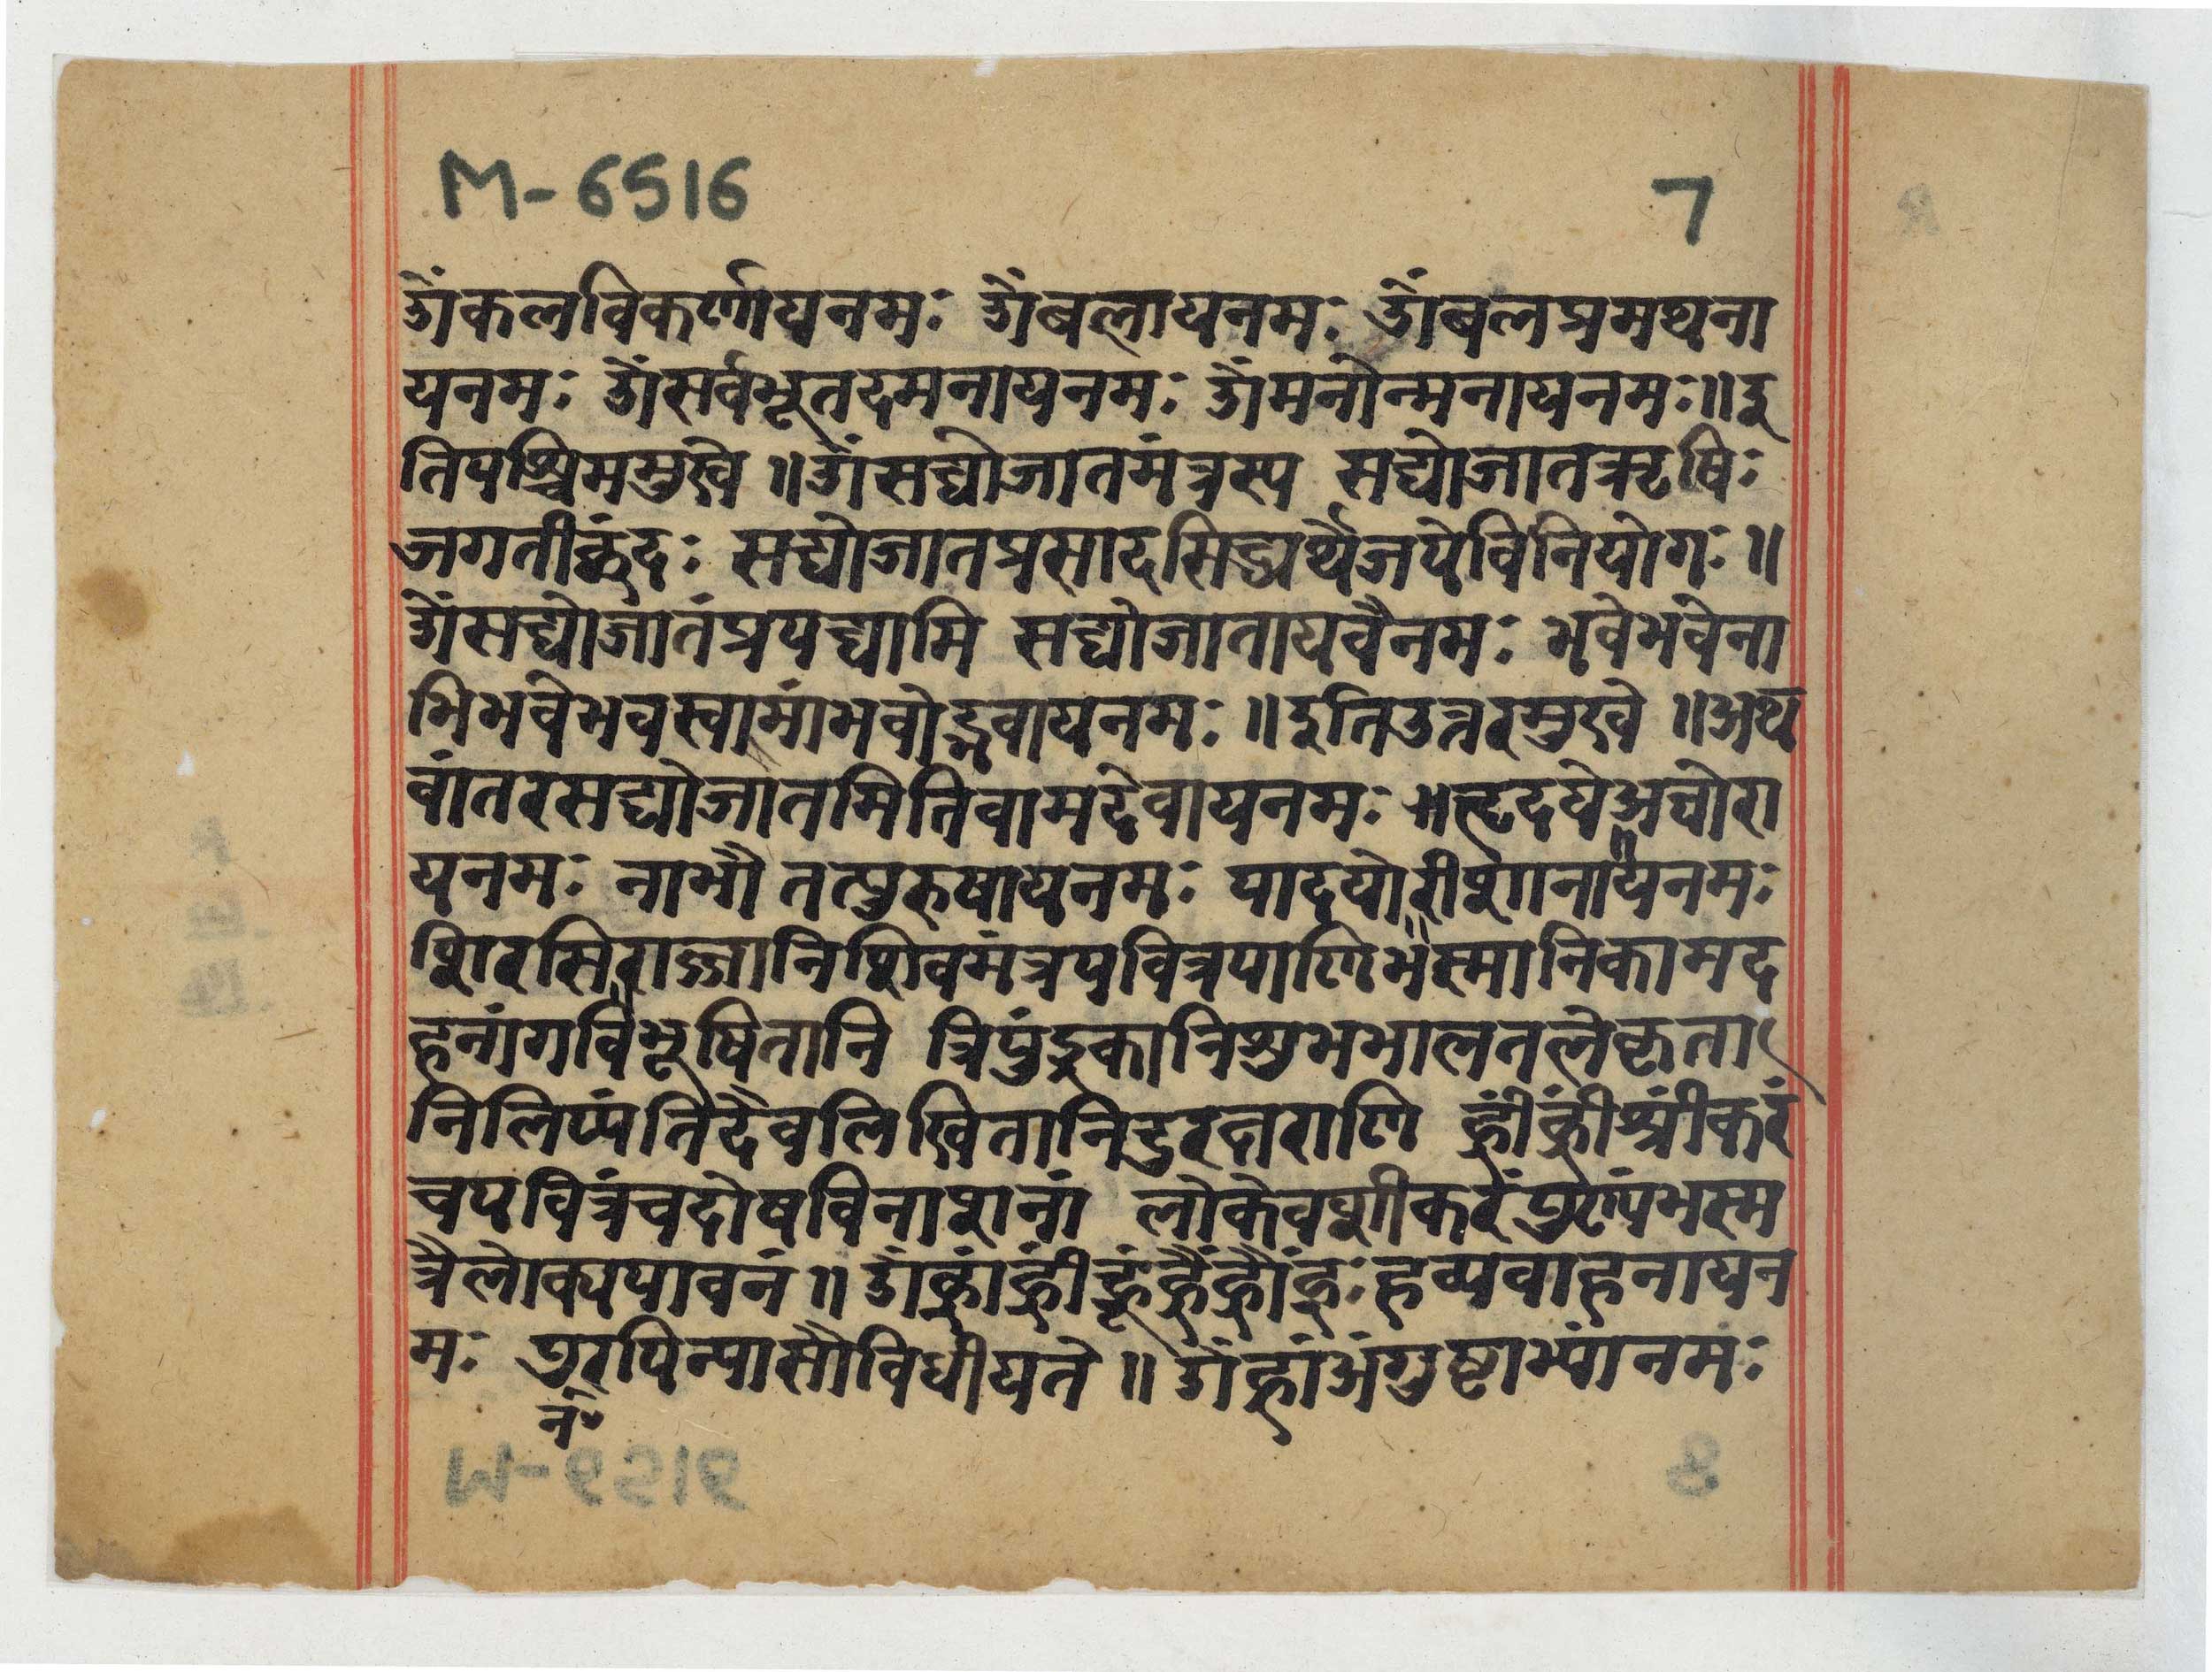 M-6516
7
ॐकलविकर्णायनमः ॐबलायनमः ॐबलप्रमथना
यनमः ॐसर्वभूतदमनायनमः ॐमनोन्मनायनमः॥इ
तिपश्चिममुखे॥ॐसद्योजातमंत्रस्य सद्योजातऋषिः
जगतीछंदः सद्योजातप्रसादसिद्ध्यर्थेजपेविनियोगः॥
ॐसद्योजातंप्रपद्यामि सद्योजातायवैनमः भवेभवेना
भिभवेभवस्वामांभवोद्भवायनमः॥इतिउत्तरमुखे॥अथ
वांतरसद्योजातमितिवामदेवायनमः॥हृदयेअघोरा
यनमः नाभौ तत्पुरुषायनमः पादयोरीशानायनमः
शिरसि॥ शिवमंत्रपवित्रपाणिर्भस्मानिकामद
हनांगविभूषितानि त्रिपुंड्रकानिशुभभालतलेकृता
निलिप्यंतिदैवलिखितानिदुरक्षराणि ह्रींक्रींश्रींकरं
चपवित्रंचदोषविनाशनां लोकेवशीकरंपुण्यंभस्म
त्रैलोक्यपावनं॥ ॐह्रांह्रींह्रूंह्रैंह्रौंह्रः हव्यवाहनायन
मः पुरपिन्यासौविधीयते॥ॐह्रांअंगुष्टाभ्यांनमः
न